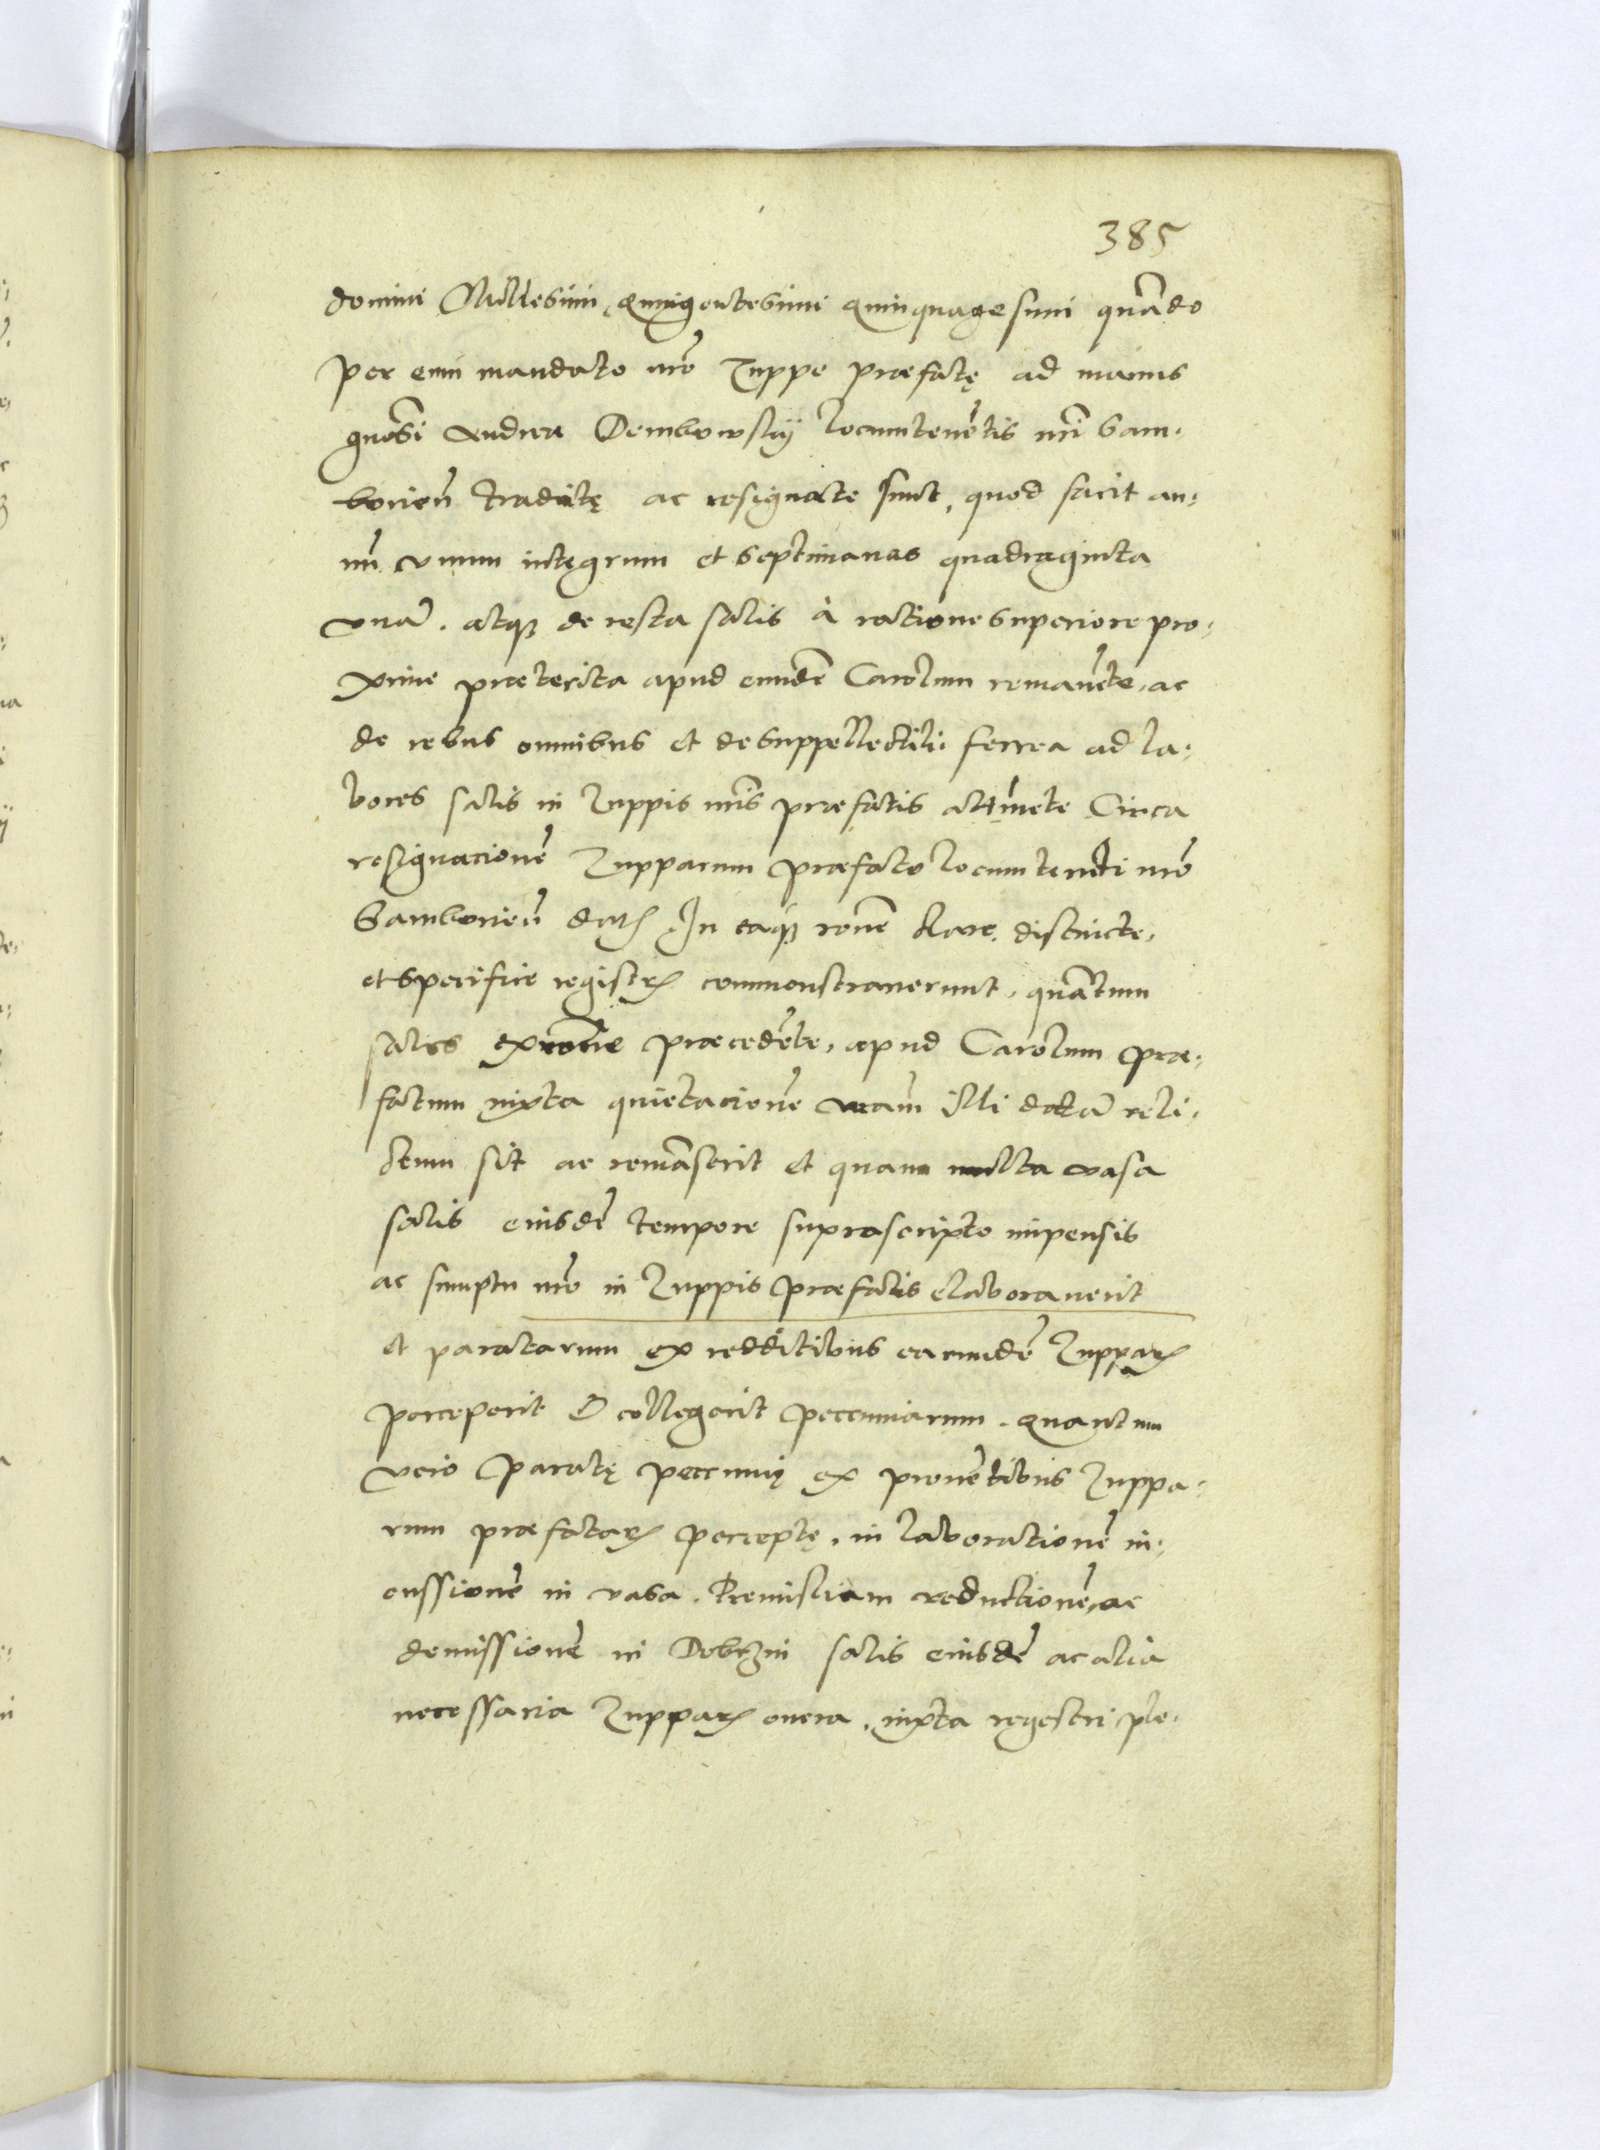 385
domini Millesimi, Quingentesimi Quinquagesimi quãdo
per eum mandato nr̃o Zuppe præfatę ad manus
gnosi Andreæ Dembowskÿ locumtenẽtis nr̃i Sam-
borieñ traditę ac resignate sunt, quod facit an-
nũ vnum integrum et septimanas quadraginta
vnã. atq3 de resta salis à ratione superiore pro-
xime præterita apud eundẽ Carolum remanẽte, ac
de rebus omnibus et de suppellectili ferrea ad la-
bores salis in Zuppis nr̃is præfatis attinẽte Circa
resignacionẽ Zupparum præfato locumtenẽti nr̃o
Samborieñ dat. In eaq3 rõne clare, distincte,
et specifice registr. commonstraverunt, quãtum
salis ex rõne præcedẽte, apud Carolum præ-
fatum iuxta quietacionẽ nr̃am illi datã reli-
ctum sit ac remãserit et quam multa vasa
salis eiusdẽ tempore suprascripto impensis
ac sumptu nr̃o in Zuppis præfatis elaboraverit
et paratarum ex redditibus earundẽ Zuppar.
perceperit & collegerit peccuniarum. Quantum
vero paratę peccunię ex provẽtibus Zuppa-
rum præfatar. perceptę, in laborationẽ in-
cussionẽ in vasa. Premisliam reductionẽ, ac
demissionẽ in Dobrzin salis eiusdẽ ac alia
necessaria Zuppar. onera, iuxta regestri ple-